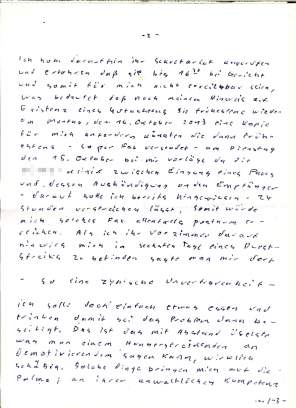 - 2 -
Ich habe daraufhin ihr Sekretariat angerufen
und erfahren daß sie bis 16³⁰ bei Gericht
und somit für mich nicht erreichbar seien,
was bedeutet daß nach meinem Hinweis auf
Existenz eines Gutachtens Sie frühestens wieder
am Montag, den 14. Oktober 2013 eine Kopie
für mich anfordern könnten die dann früh-
estens - sogar Fax versendet - am Dienstag
den 15. Oktober bei mir vorläge da die
zwischen Eingang eines Faxes
und dessen Aushändigung an den Empfänger
- darauf habe ich bereits hingewiesen - 24
Stunden verstreichen lässt, somit würde
mich solches Fax allenfalls postum er-
reichen. Als ich ihr Vorzimmer darauf
hinwies mich im sechsten Tag eines Durst-
streiks zu befinden sagte man mir dort
- so eine typische Unvertrorenheit -
ich solle doch einfach etwas essen und
trinken damit sei das Problem dann be-
seitigt. Das ist das mit Abstand übelste
was man einem Hungerstreikenden an
Demotivierendem sagen kann, wirklich
schäbig. Solche Dinge bringen mich auf die
Palme; an ihrer anwaltlichen Kompetenz
- 3 -